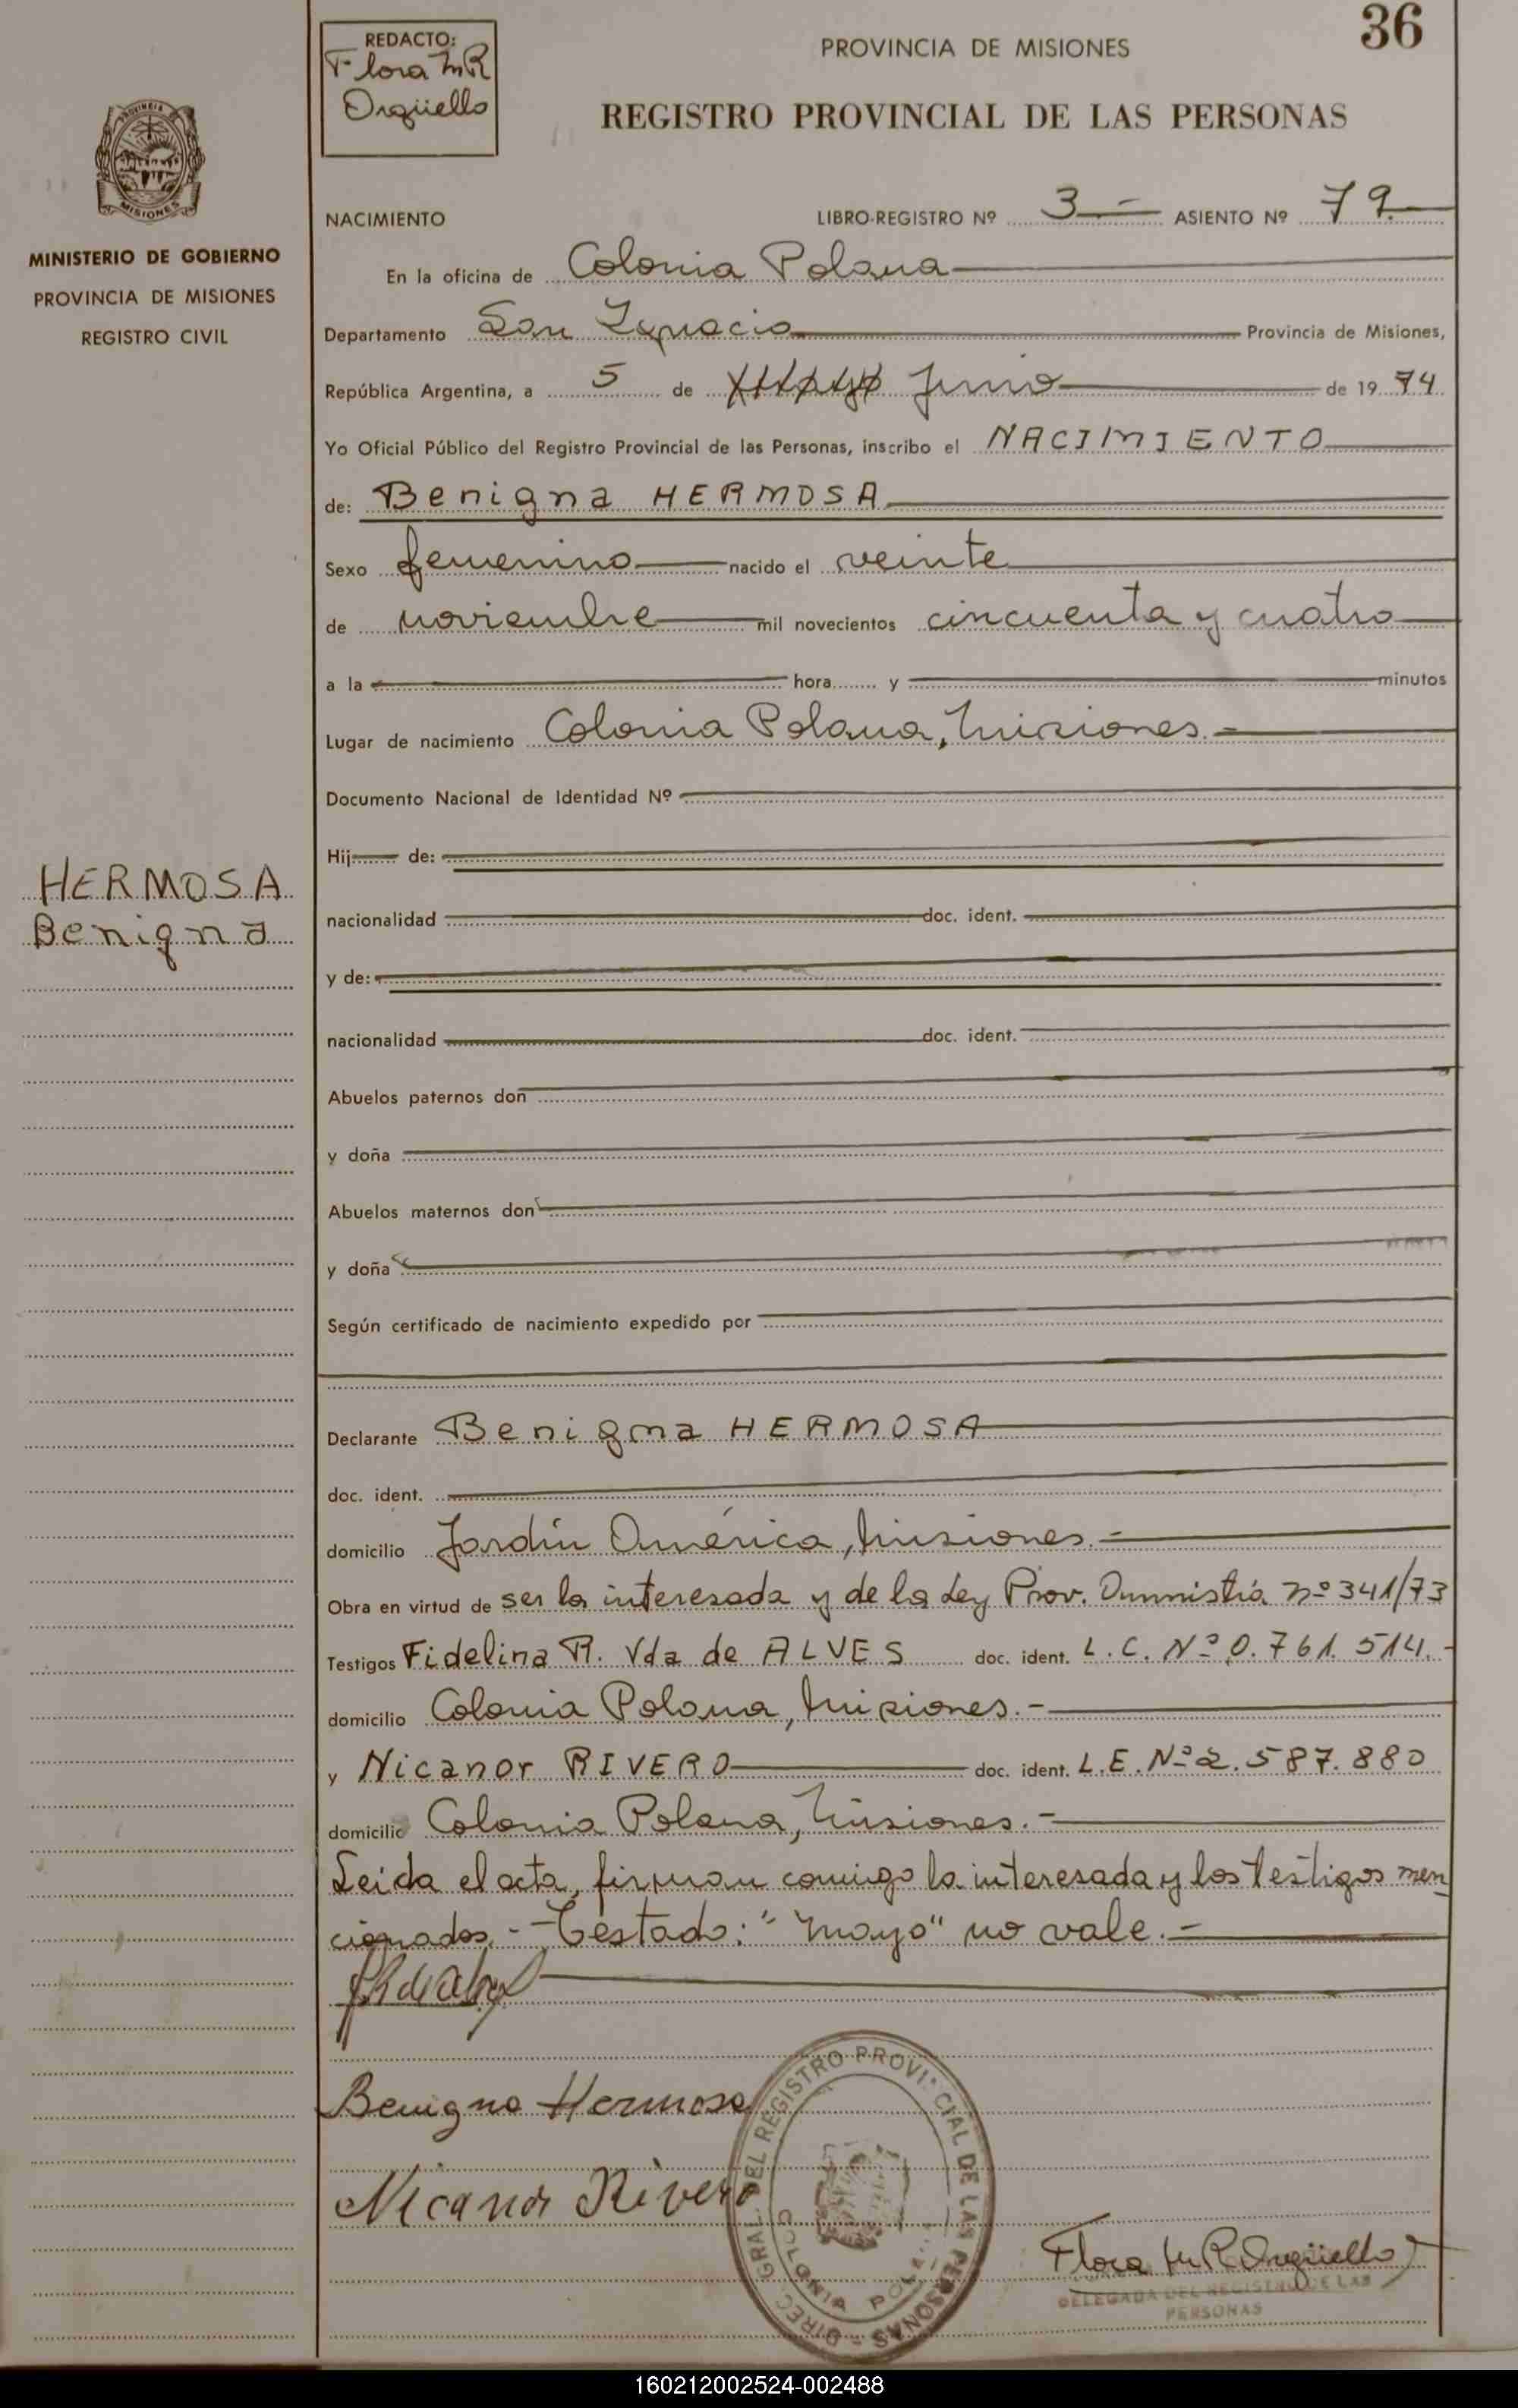 36
REDACTO:
Flora M R
Orgüello
PROVINCIA DE MISIONES
REGISTRO PROVINCIAL DE LAS PERSONAS
MISIONES
MINISTERIO DE GOBIERNO
PROVINCIA DE MISIONES
REGISTRO CIVIL
HERMOSA
Benigna
NACIMIENTO LIBRO-REGISTRO Nº 3 ASIENTO Nº 79
En la oficina de Colonia Polana
Departamento San Ignacio Provincia de Misiones,
República Argentina, a 5 de Mayo Junio de 1974
Yo Oficial Público del Registro Provincial de las Personas, inscribo el NACIMIENTO
de: Benigna HERMOSA
Sexo femenino nacido el veinte
de noviembre mil novecientos cincuenta y cuatro
a la hora y minutos
Lugar de nacimiento Colonia Polana, Misiones.-
Documento Nacional de Identidad Nº
Hij de:
nacionalidad doc. ident.
y de:
nacionalidad doc. ident.
Abuelos paternos don
y doña
Abuelos maternos don
y doña
Según certificado de nacimiento expedido por
Declarante Benigna HERMOSA
doc. ident.
domicilio Jardín América, Misiones.-
Obra en virtud de ser la interesada y de la Ley Prov. Amnistía nº 341/73
Testigos Fidelina R. Vda de ALVES doc. ident. L.C. Nº 0.761.514.-
domicilio Colonia Polana, Misiones.-
y Nicanor RIVERO doc. ident. L.E. Nº 2.587.880
domicilio Colonia Polana, Misiones.-
Leida el acta, firman comigo la interesada y los testigos men
cionados.- Testado: "mayo" no vale.-
Benigna Hermosa
Nicanor Rivero
DIREC. GRAL. DEL REGISTRO PROVINCIAL DE LAS PERSONAS
COLONIA POLANA
Flora M R Orgüello
DELEGADA DEL REGISTRO DE LAS
PERSONAS
160212002524-002488